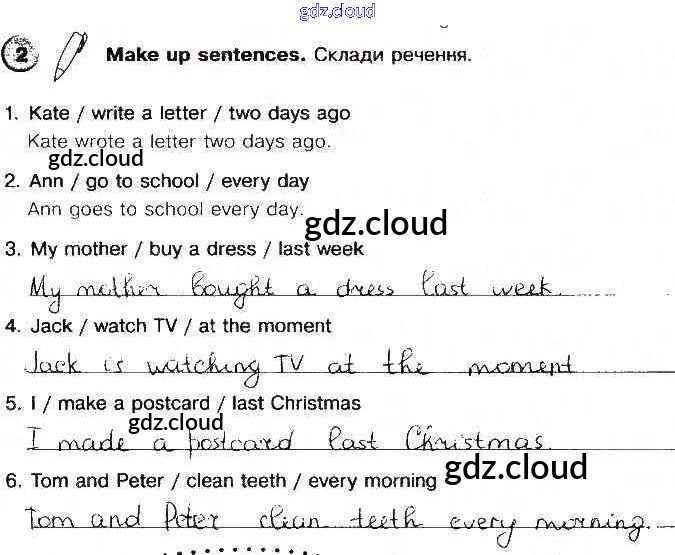 gdz.cloud
2 Make up sentences. Склади речення.
1. Kate / write a letter / two days ago
Kate wrote a letter two days ago.
gdz.cloud
2. Ann / go to school / every day
Ann goes to school every day.
gdz.cloud
3. My mother / buy a dress / last week
My mother bought a dress last week.
4. Jack / watch TV / at the moment
Jack is watching TV at the moment
5. I / make a postcard / last Christmas
gdz.cloud
I made a postcard last Christmas.
6. Tom and Peter / clean teeth / every morning
gdz.cloud
Tom and Peter clean teeth every morning.